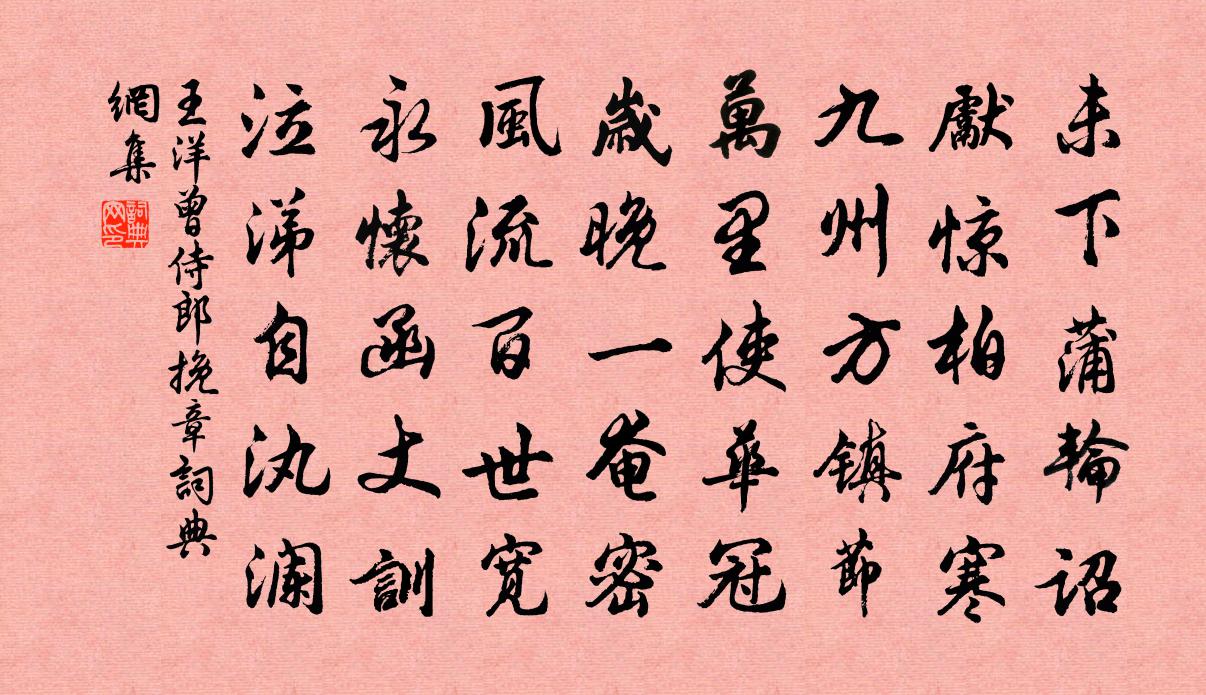 未下蒲輪詔
獻惊柏府寒
九州方鎮節
萬里使華冠
歲晚一奄密
風流百世寬
永懷函丈訓
泣涕自汍瀾
王洋曾侍郎挽章詞典
網集
詞典網印